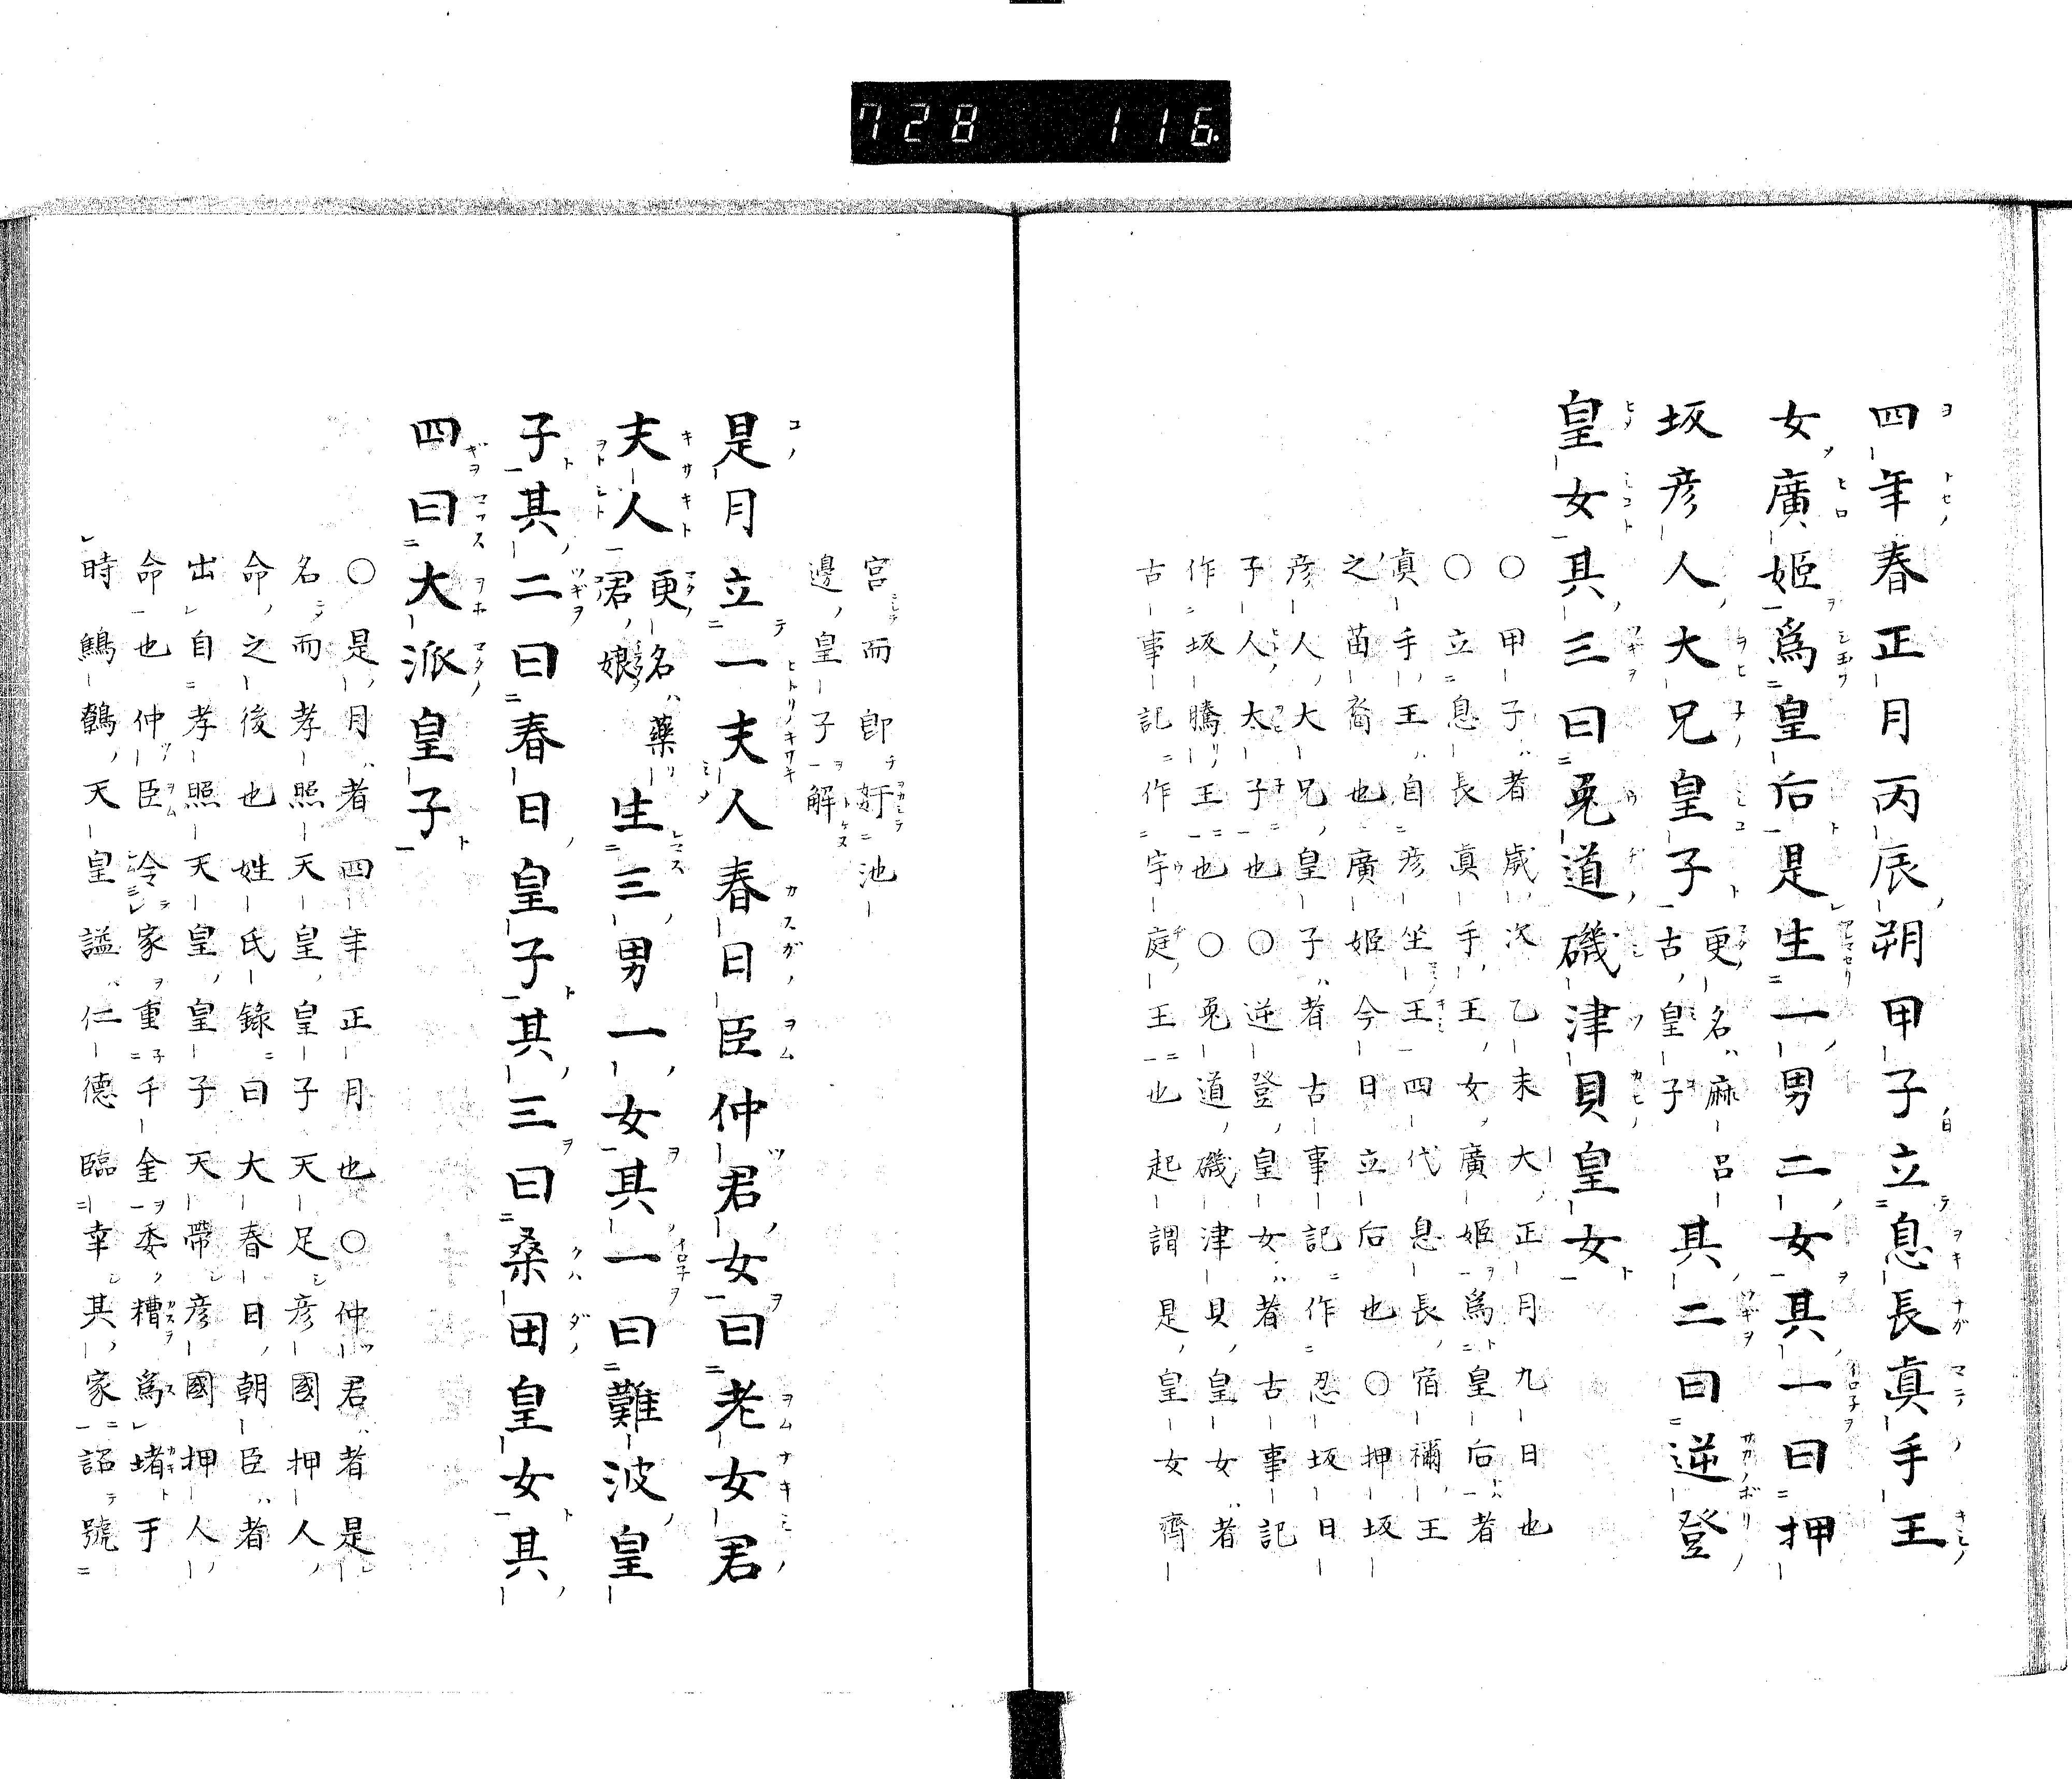 728 116
四年春正月丙辰朔甲子立息長眞手王
女廣姬爲皇后是生一男二女其一曰押
坂彦人大兄皇子更名麻呂古皇子其二曰逆登
皇女其三曰菟道磯津貝皇女
○甲子者歲次乙未大正月九日也
○立息長眞手王女廣姬爲皇后者
眞手王自彦坐王四代息長宿禰王
之苗裔也廣姬今日立后也○押坂
彦人大兄皇子者古事記作忍坂日
子人太子也○逆登皇女者古事記
作坂騰王也○菟道磯津貝皇女者
古事記作宇庭王也起謂是皇女齊
宮而卽奸池
邊皇子解
是月立一夫人春日臣仲君女曰老女君
夫人更名藥君娘生三男一女其一曰難波皇
子其二曰春日皇子其三曰桑田皇女其
四曰大派皇子
○是月者四年正月也○仲君者是
名而孝照天皇皇子天足彦國押人
命之後也姓氏錄曰大春日朝臣者
出自孝照天皇皇子天帶彦國押人
命也仲臣令家重千金委糟爲堵于
時鷦鷯天皇謚仁德臨幸其家詔號